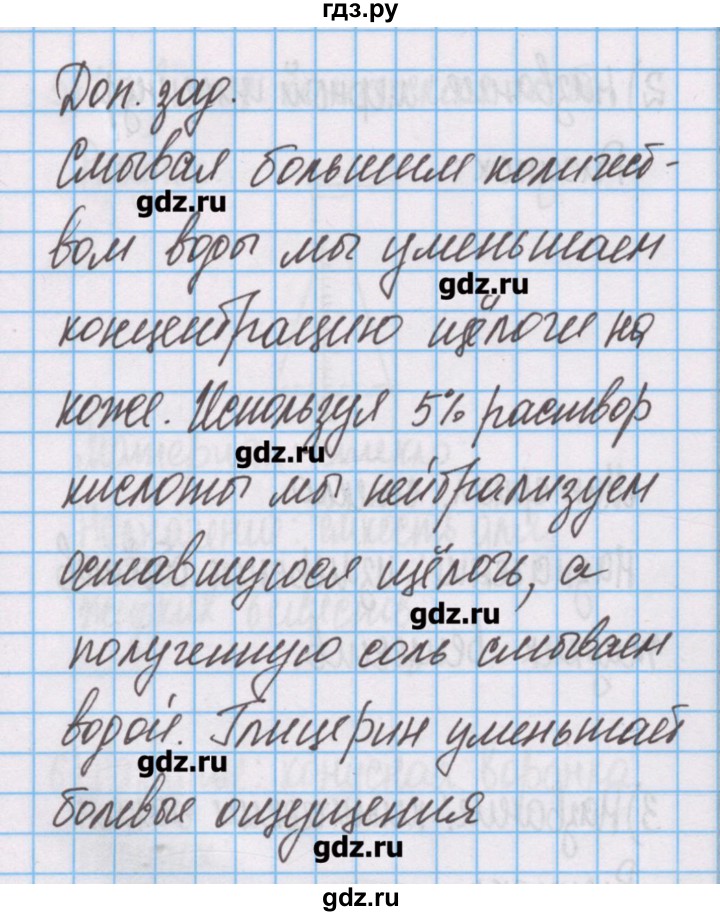 гдз.ру
Доп. зад.
Смывая большим количест-
gdz.ru
вом воды мы уменьшаем
gdz.ru
концентрацию щёлочи на
коже. Используя 5% раствор
gdz.ru
кислоты мы нейтрализуем
оставшуюся щёлочь, а
gdz.ru
полученную соль смываем
водой. Глицерин уменьшает
gdz.ru
болевые ощущения
gdz.ru
gdz.ru